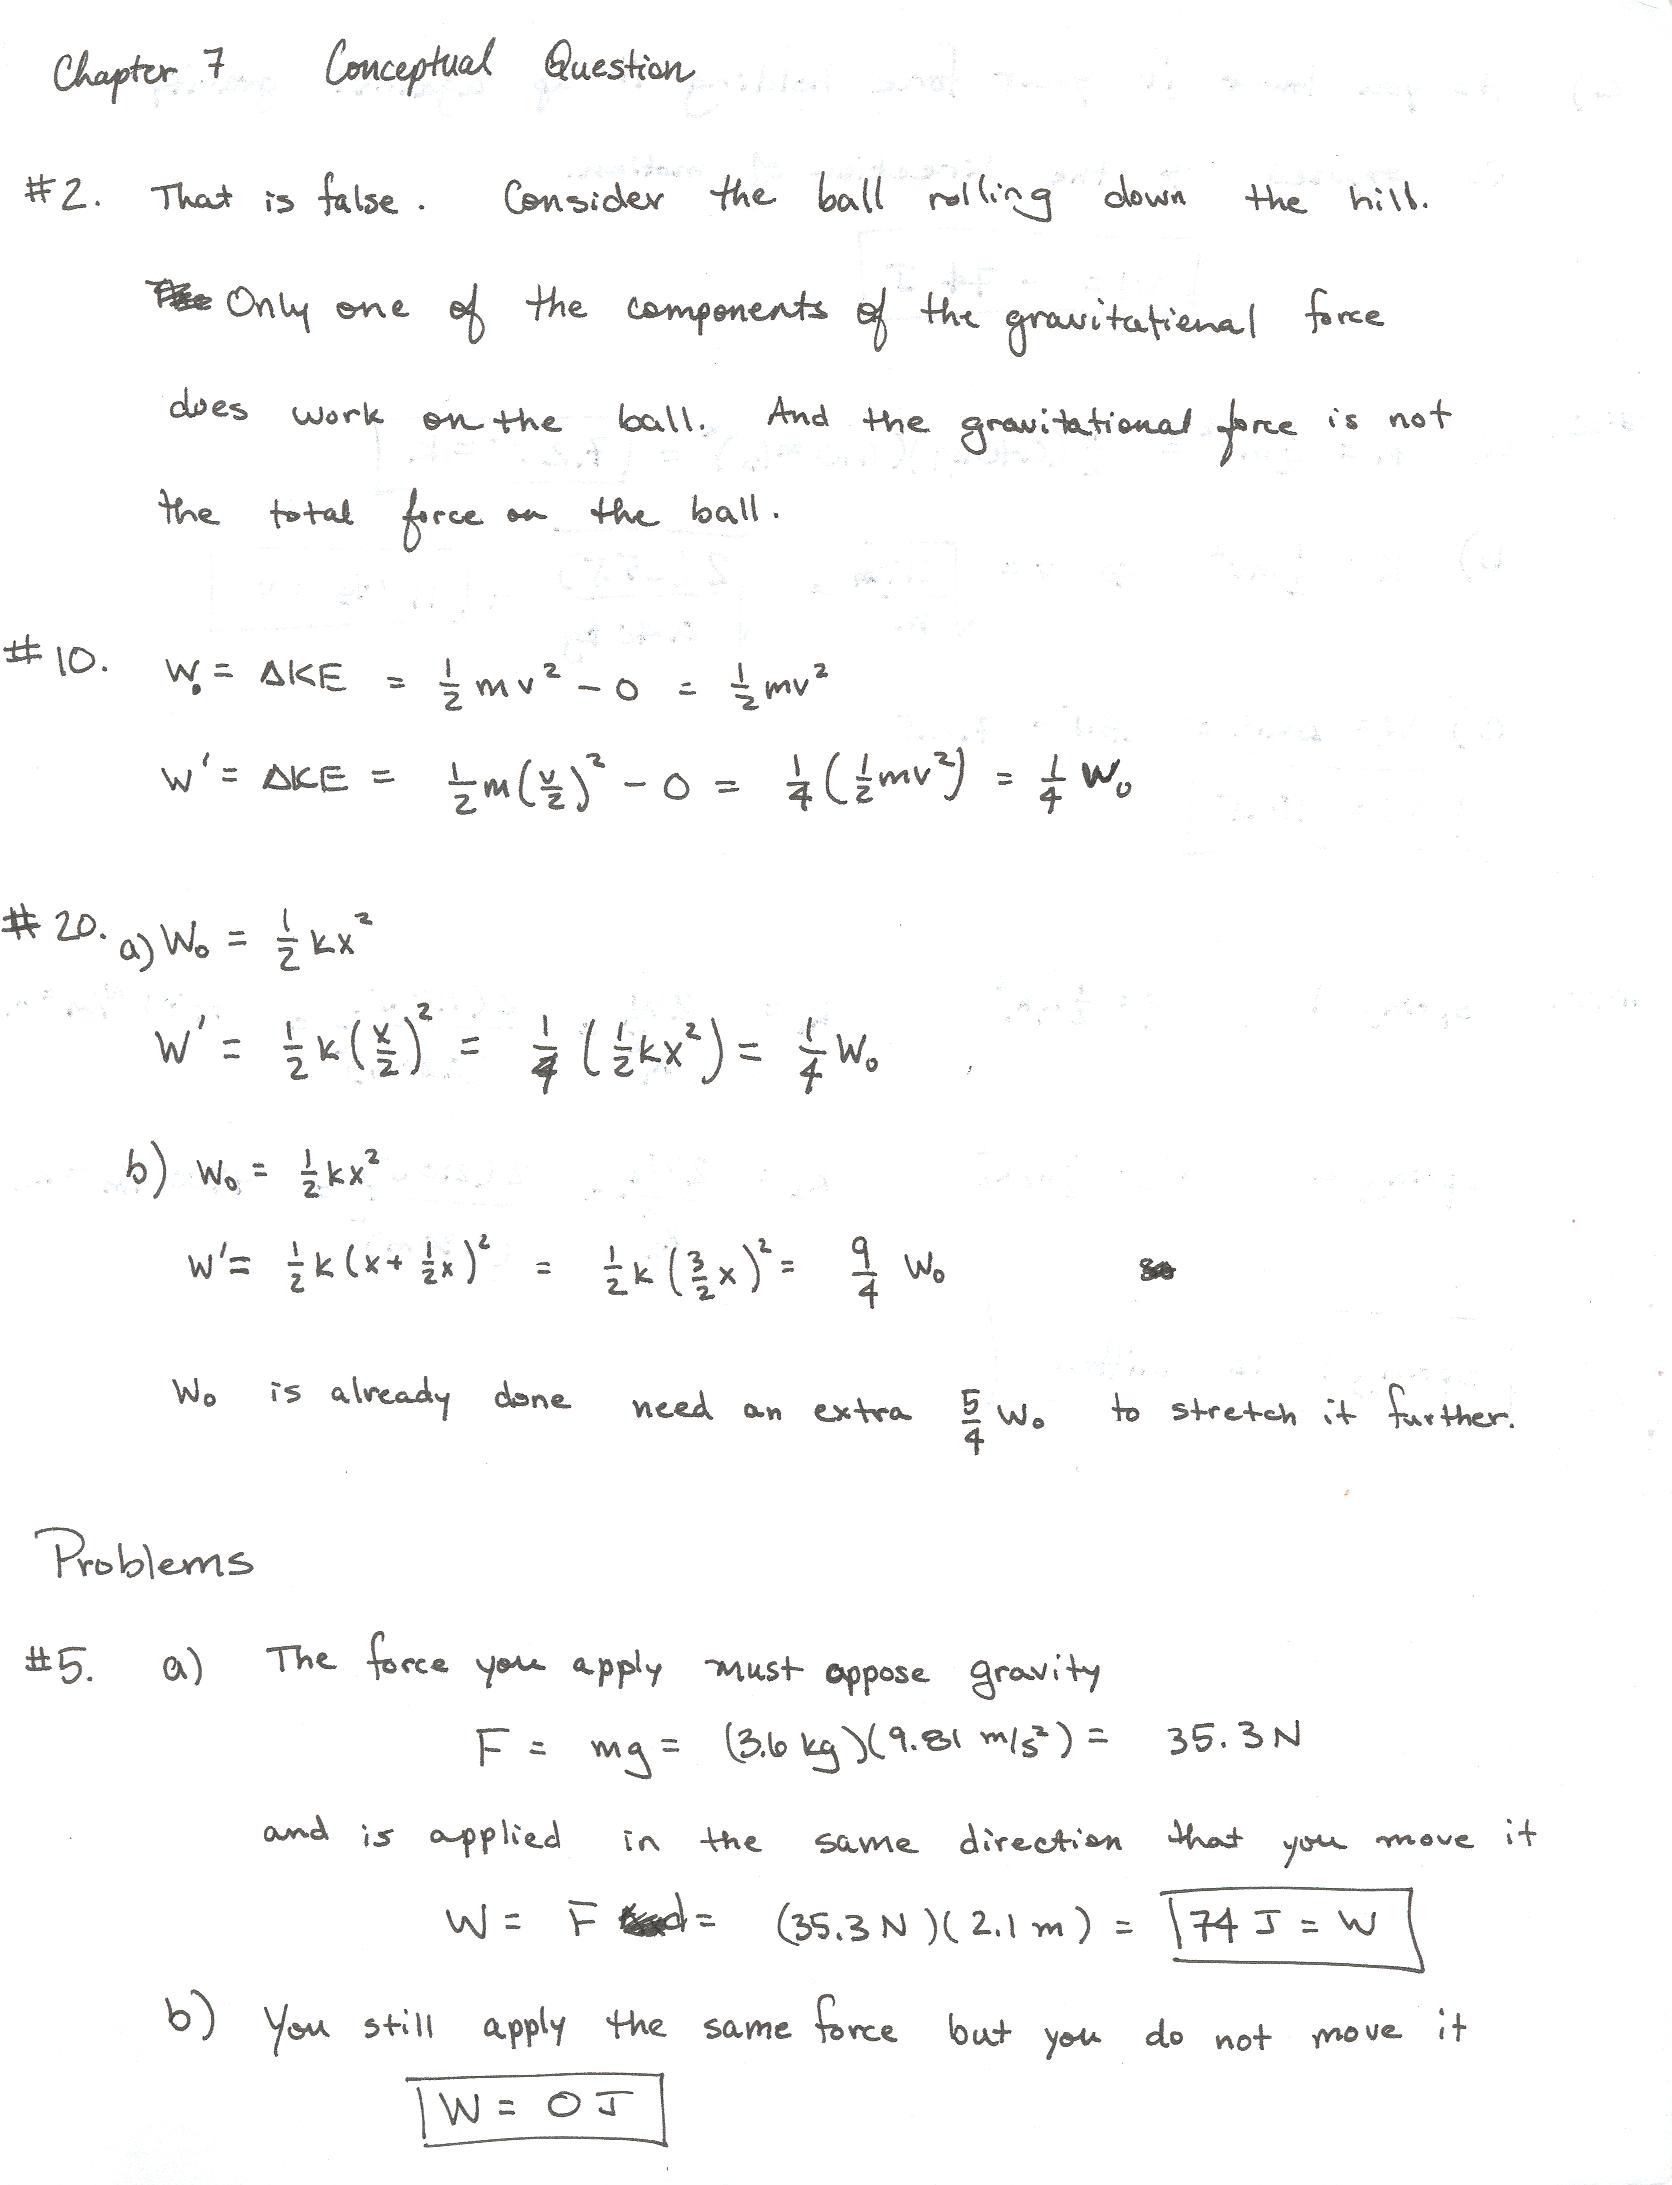 Chapter 7 Conceptual Question
#2. That is false. Consider the ball rolling down the hill.
Only one of the components of the gravitational force
does work on the ball. And the gravitational force is not
the total force on the ball.
#10. W₀ = ΔKE = 1/2 mv² - 0 = 1/2 mv²
W' = ΔKE = 1/2 m(v/2)² - 0 = 1/4 (1/2 mv²) = 1/4 W₀
#20. a) W₀ = 1/2 kx²
W' = 1/2 k(x/2)² = 1/4 (1/2 kx²) = 1/4 W₀
b) W₀ = 1/2 kx²
W' = 1/2 k(x + 1/2 x)² = 1/2 k(3/2 x)² = 9/4 W₀
W₀ is already done need an extra 5/4 W₀ to stretch it further.
Problems
#5. a) The force you apply must oppose gravity
F = mg = (3.6 kg)(9.81 m/s²) = 35.3 N
and is applied in the same direction that you move it
W = F d = (35.3 N)(2.1 m) = 74 J = W
b) You still apply the same force but you do not move it
W = 0 J